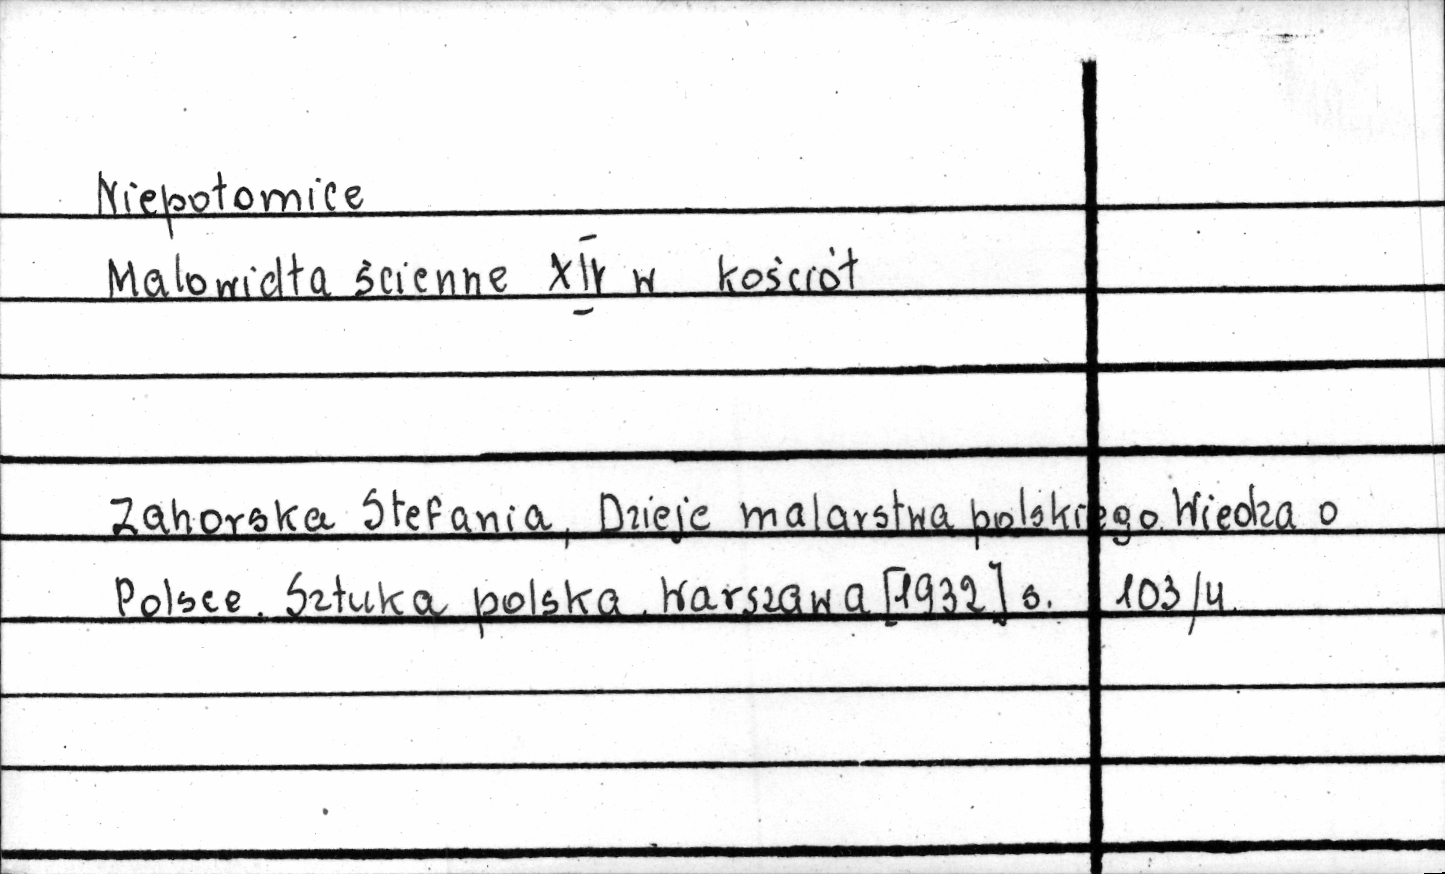 Niepołomice
Malowidła ścienne XIV w kościół
Zahorska Stefania, Dzieje malarstwa polskiego. Wiedza o
Polsce. Sztuka polska. Warszawa [1932] s. 103/4.